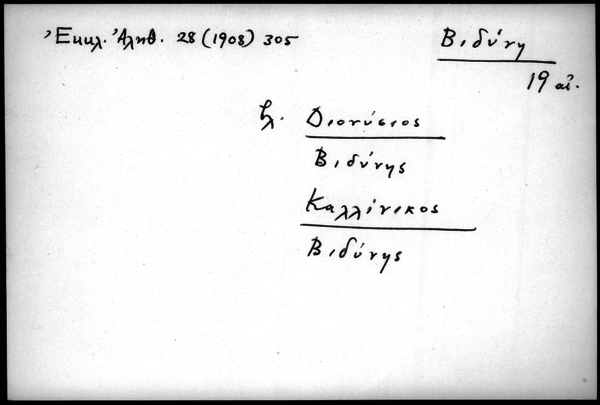 Ἐκκλ. Ἀληθ. 28 (1908) 305
Βιδύνη
19 αἰ.
βλ. Διονύσιος
Βιδύνης
Καλλίνικος
Βιδύνης